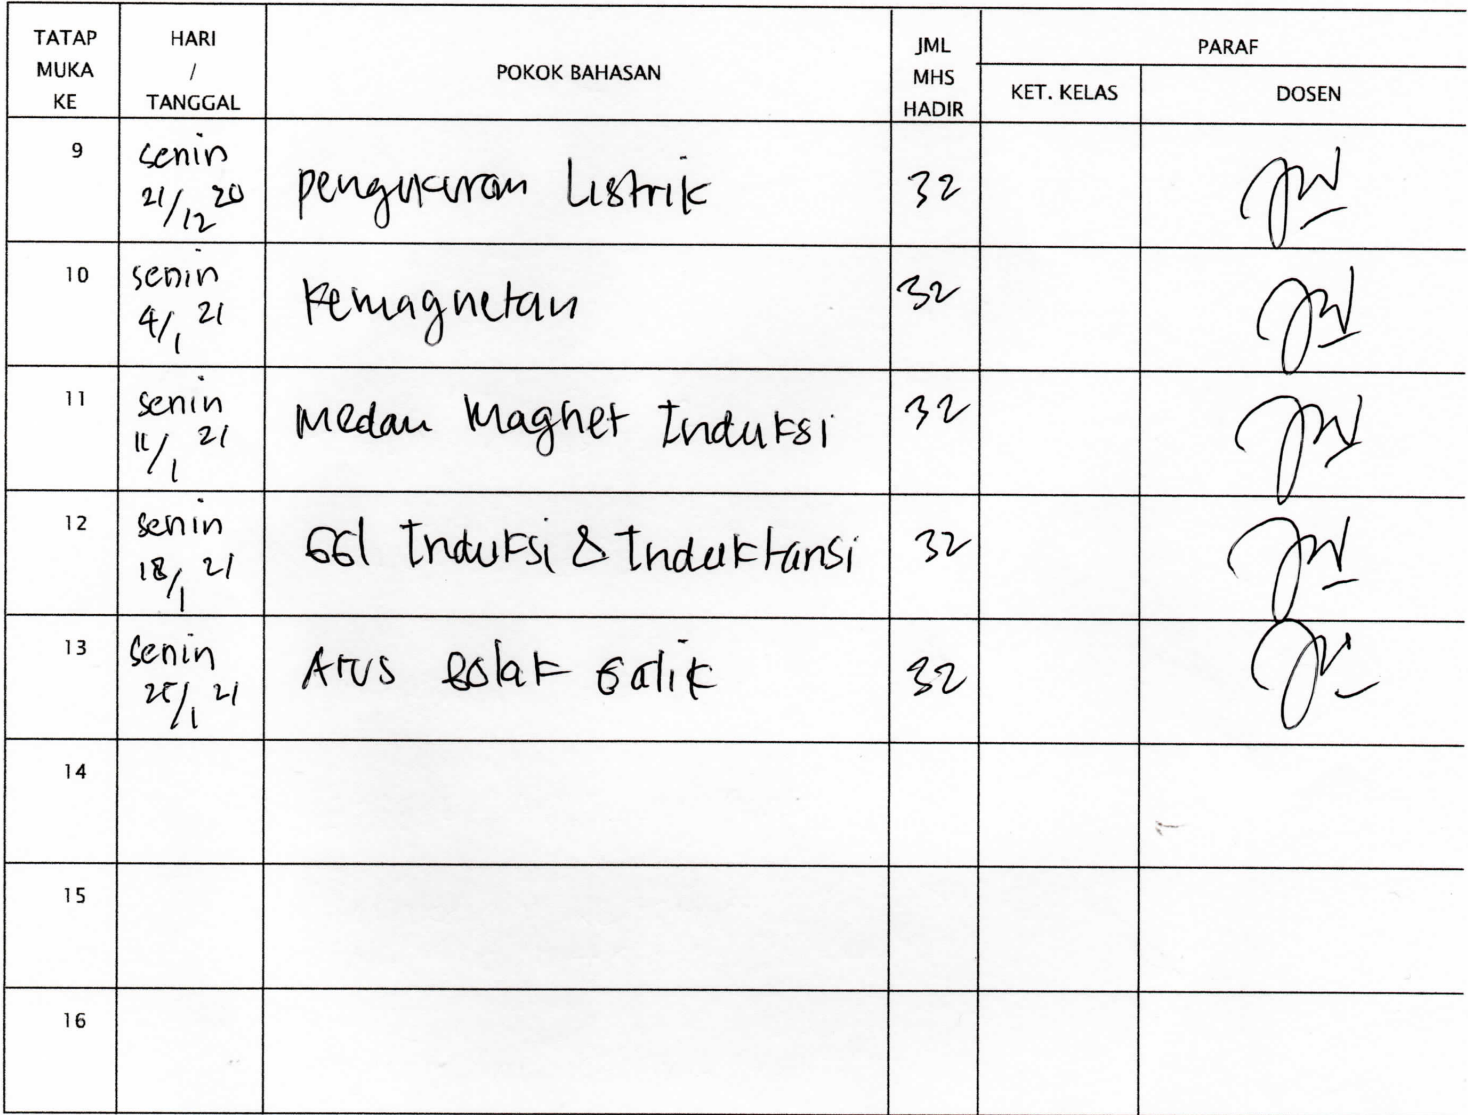 TATAP MUKA KE
HARI / TANGGAL
POKOK BAHASAN
JML MHS HADIR
PARAF
KET. KELAS
DOSEN
9
senin
21/12 20
pengukuran Listrik
32
10
senin
4/1 21
Kemagnetan
32
11
senin
11/1 21
Medan Magnet Induksi
32
12
senin
18/1 21
GGl Induksi & Induktansi
32
13
Senin
25/1 21
Arus Bolak Balik
32
14
15
16